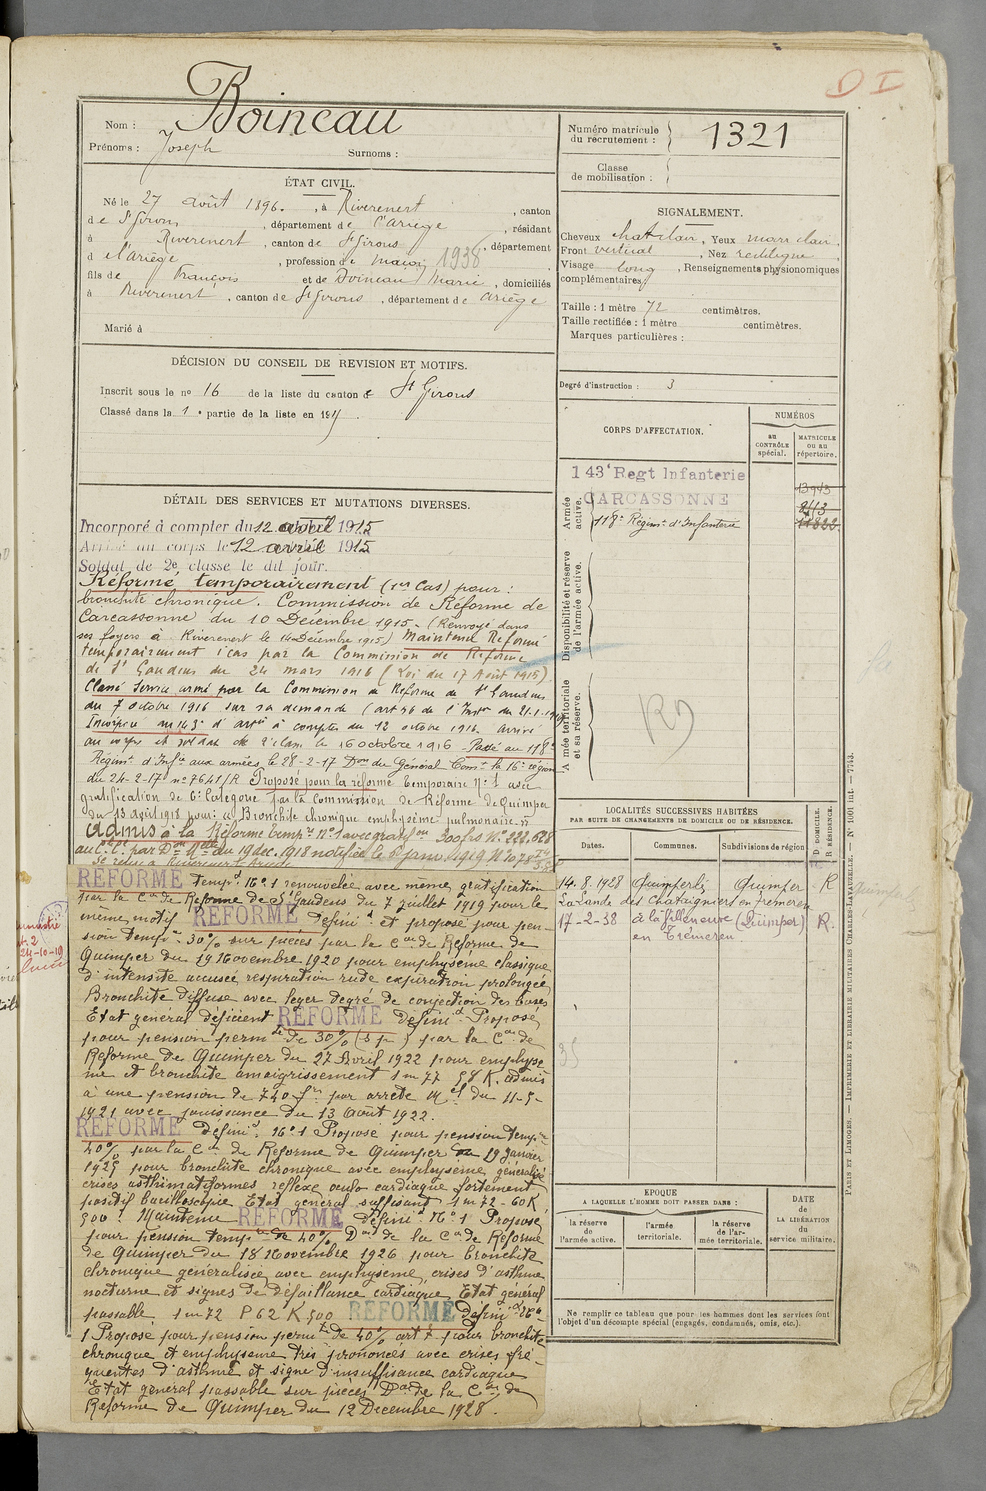 D I
Nom : Boineau
Prénoms : Joseph Surnoms :
Numéro matricule du recrutement : 1321
Classe de mobilisation :
ÉTAT CIVIL.
Né le 27 août 1896. , à Riverenert , canton
de St Girons , département de l'Ariège , résidant
à Riverenert , canton de St Girons , département
d l'Ariège , profession de maçon 1938
fils de François et de Boineau Marie , domiciliés
à Riverenert , canton de St Girons , département de Ariège
Marié à
SIGNALEMENT.
Cheveux chat clair , Yeux marr clair ,
Front vertical , Nez rectiligne ,
Visage long , Renseignements physionomiques
complémentaires
Taille : 1 mètre 72 centimètres.
Taille rectifiée : 1 mètre centimètres.
Marques particulières :
Degré d'instruction : 3
DÉCISION DU CONSEIL DE REVISION ET MOTIFS.
Inscrit sous le no 16 de la liste du canton d St Girons
Classé dans la 1 e partie de la liste en 1915
CORPS D'AFFECTATION.
NUMÉROS
au CONTRÔLE spécial.
MATRICULE ou au répertoire.
Armée active.
143e Regt Infanterie
CARCASSONNE
118e Régimt d'Infanterie
Disponibilité et réserve de l'armée active.
Armée territoriale et sa réserve.
DÉTAIL DES SERVICES ET MUTATIONS DIVERSES.
Incorporé à compter du 12 avril 1915
Arrivé au corps le 12 avril 1915
Soldat de 2e classe le dit jour.
Réformé temporairement (1er Cas) pour :
bronchite chronique. Commission de Réforme de
Carcassonne du 10 Décembre 1915. (Renvoyé dans
ses foyers à Riverenert le 14 Décembre 1915) Maintenu Réformé
temporairement 1 cas par la Commission de Réforme
de St Gaudens du 24 mars 1916 (Loi du 17 Août 1915).
Classé Service armé par la Commission de Réforme de St Gaudens
du 7 octobre 1916 sur sa demande (art 96 de l'Instr du 21.1.
Incorporé au 143e d'Infie à compter du 12 octobre 1916. Arrivé
au corps et soldat de 2e classe le 16 octobre 1916. Passé au 118e
Régimt d'Infie aux armées, le 28-2-17 Don du Général Comt la 16e région
du 24-2-17 no 7641/R Proposé pour la réforme temporaire No 1 avec
gratification de 6e Catégorie par la Commission de Réforme de Quimper
du 13 août 1918 pour : a) Bronchite chronique emphysème pulmonaire
admis à la Réforme temp. No 1 avec gratif on 300 frs No 222.628
au par Don Melle du 19 dec. 1918 notifiée le 6 janv. 1919
RÉFORMÉ temp. No 1 renouvelée avec même gratification
par la Con de Réforme de St Gaudens du 7 juillet 1919 pour le
même motif RÉFORMÉ Définit et proposé pour pen-
sion temp. 30% sur pièces par la Con de Réforme de
Quimper du 19 Novembre 1920 pour emphysème classique
d'intensité accusée respiration rude expiration prolongée
Bronchite diffuse avec léger degré de congection des bases
Etat général déficient RÉFORMÉ Définit Proposé
pour pension permte de 30% par la Con de
Réforme de Quimper du 27 Avril 1922 pour emphyse
me et bronchite amaigrissement 1m77 58 K. admis
à une pension de 740 frs par arrêté Mel du 11-5-
1921 avec jouissance du 13 Août 1922.
RÉFORMÉ définit No 1 Proposé pour pension temp.
40% par la Con de Réforme de Quimper du 19 Janvier
1925 pour bronchite chronique avec emphyseme généralisé
crises asthmatiformes reflexe oculo cardiaque fortement
positif bacilloscopie Etat général suffisant 1m72 - 60 K
500. Maintenu RÉFORMÉ définit No 1 Proposé
pour pension temp. de 40% Don de la Con de Réforme
de Quimper du 18 Novembre 1926 pour bronchite
chronique généralisée avec emphyseme, crises d'asthme
nocturne et signes de défaillance cardiaque Etat général
passable 1m72 P 62 K 500 RÉFORMÉ définit No
1 Proposé pour pension permte de 40% art 7 pour bronchite
chronique et emphyseme très prononcés avec crises fré-
quentes d'asthme et signe d'insuffisance cardiaque
Etat général passable sur pièces Don de la Con de
Réforme de Quimper du 12 Decembre 1928.
LOCALITÉS SUCCESSIVES HABITÉES
PAR SUITE DE CHANGEMENTS DE DOMICILE OU DE RÉSIDENCE.
Dates. Communes. Subdivisions de région D DOMICILE. R RÉSIDENCE.
14.8.1928 Quimperlé Quimper R
La Lande des Chataigniers en Tremeven
17-2-38 à la Villeneuve (Quimper) R.
en Trémeven
35
ÉPOQUE
A LAQUELLE L'HOMME DOIT PASSER DANS :
la réserve de l'armée active.
l'armée territoriale.
la réserve de l'armée territoriale.
DATE de LA LIBÉRATION du service militaire.
Ne remplir ce tableau que pour les hommes dont les services font
l'objet d'un décompte spécial (engagés, condamnés, omis, etc.).
PARIS ET LIMOGES. — IMPRIMERIE ET LIBRAIRIE MILITAIRES CHARLES-LAVAUZELLE. — No 1001 int. — 7743.